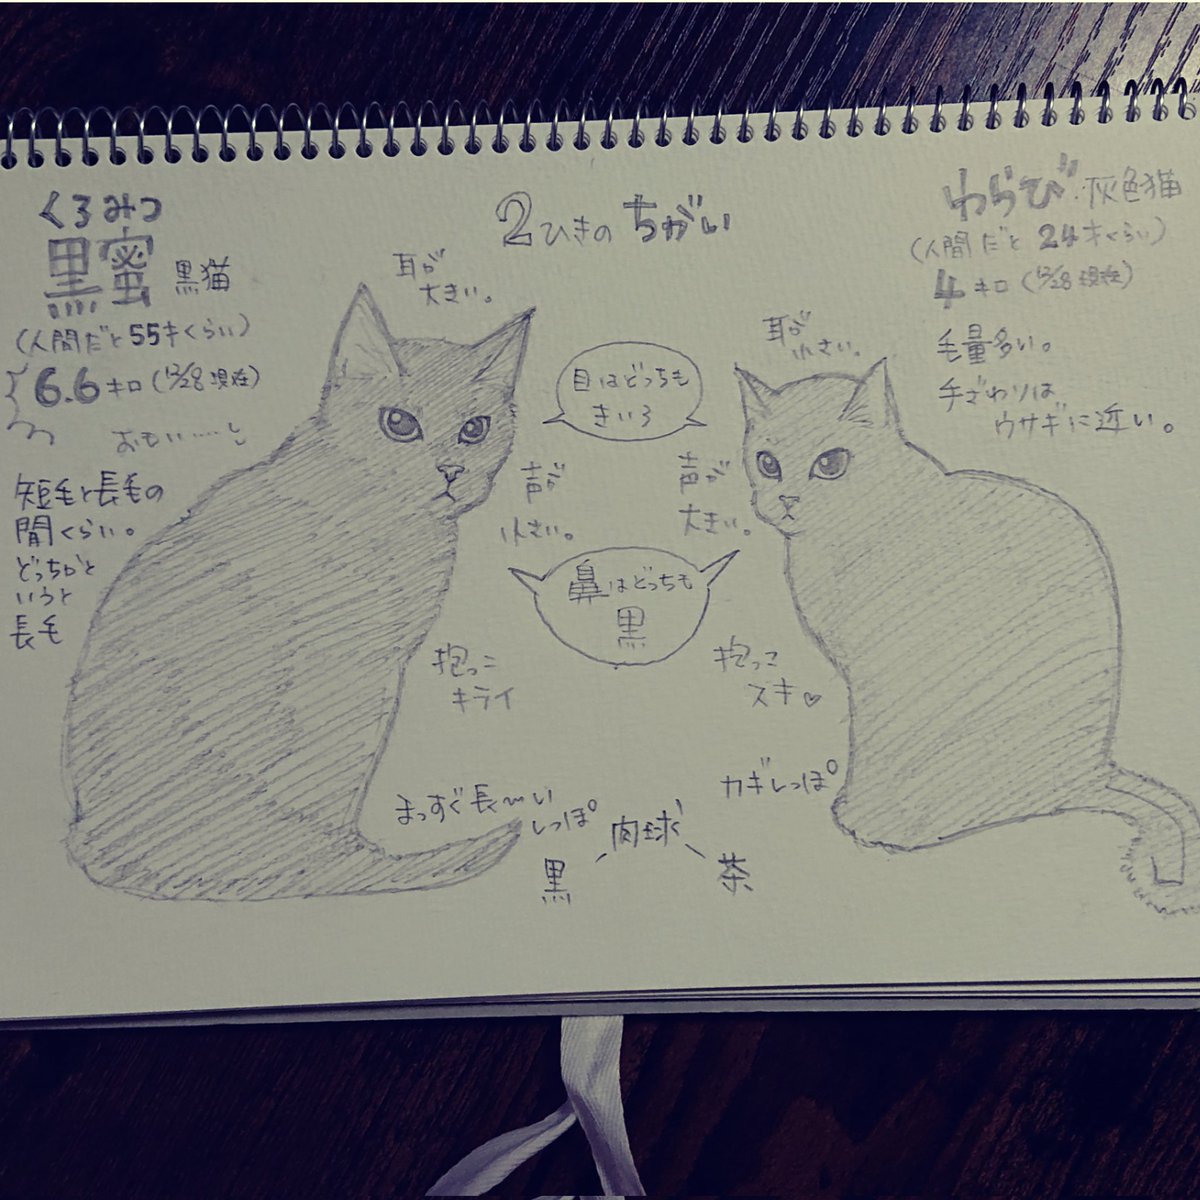 2ひきの ちがい
くろみつ
黒蜜 黒猫
(人間だと55才くらい)
6.6キロ(12/28現在)
おもい……し
短毛と長毛の
間くらい。
どっちかと
いうと
長毛
耳が
大きい。
声が
小さい。
抱っこ
キライ
まっすぐ長〜い
しっぽ
目はどっちも
きいろ
鼻はどっちも
黒
肉球
黒
茶
わらび 灰色猫
(人間だと 24才くらい)
4キロ(12/28現在)
毛量多い。
手ざわりは
ウサギに近い。
耳が
小さい。
声が
大きい。
抱っこ
スキ♡
カギしっぽ